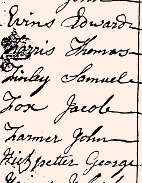 Evins Edward
Harris Thomas
Finley Samuel
Fox Jacob
Farmer John
George